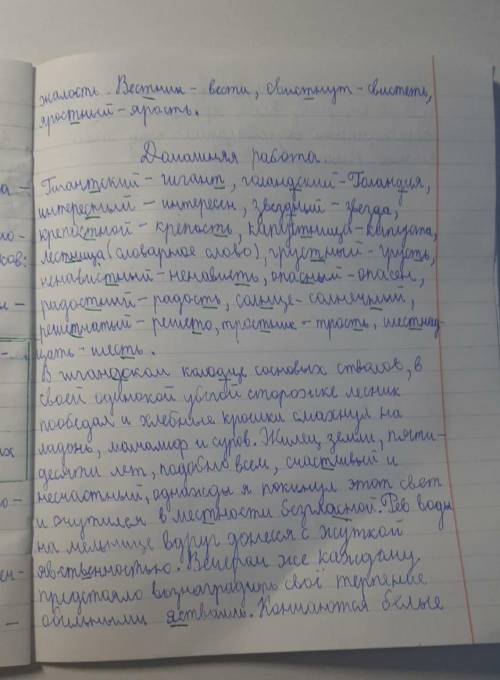 жалость. Вестник - вести, свистнут - свистеть,
яростный - ярость.
Домашняя работа.
Гигантский - гигант, голандский - Голандия,
интересный - интересен, звездный - звезда,
крепостной - крепость, капустница - капуста,
лестница (словарное слово), грустный - грусть,
ненавистный - ненависть, опасный - опасен,
радостний - радость, солнце - солнечный,
решетчатый - решето, тростник - трость, шестнад-
цать - шесть.
В гигандском колодце сосновых стволов, в
своей одинокой убогой сторожке лесник
пообедал и хлебные крошки смахнул на
ладонь, молчалив и суров. Жилец земли, пяти-
десяти лет, подобно всем, счастливый и
несчастный, однажды я покинул этот свет
и очутился в местности безгласной. Рёв воды
на мельнице вдруг донесся с жуткой
явственностью. Вечерам же каждому
предстояло вознаградить своё терпение
обильными яствами. Кончаются белые